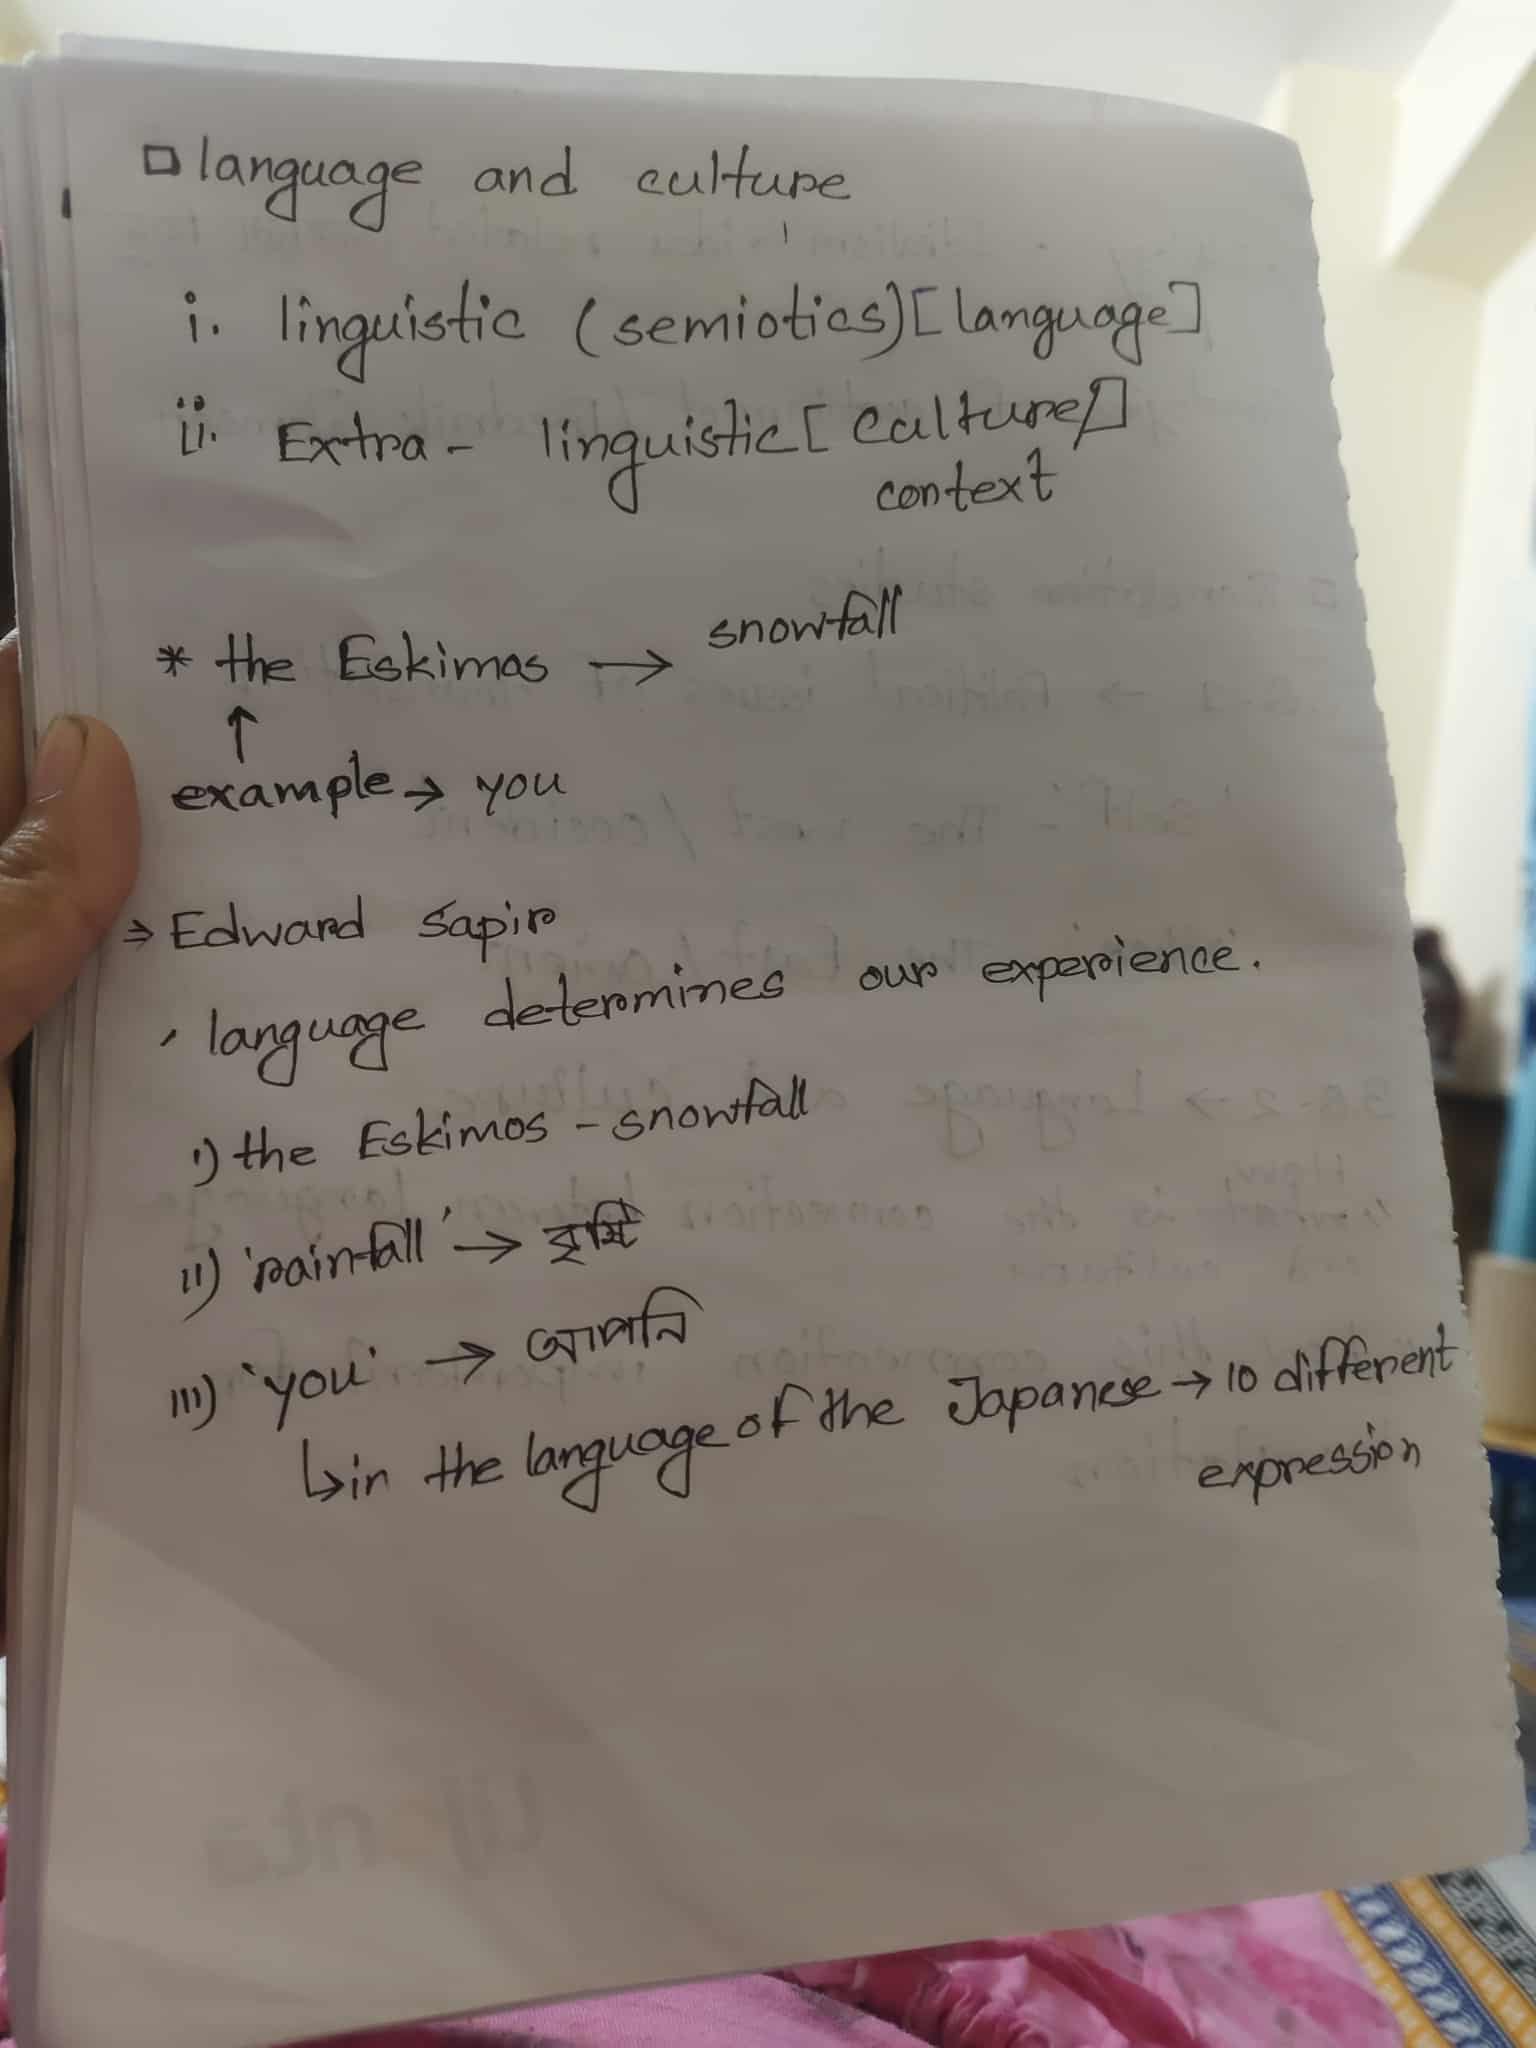 □ language and culture
i. linguistic (semiotics) [language]
ii. Extra-linguistic [culture/]
context
* the Eskimos → snowfall
↑
example → you
⇒ Edward Sapir
, language determines our experience.
i) the Eskimos - snowfall
ii) 'rainfall' → বৃষ্টি
iii) 'you' → আপনি
↳ in the language of the Japanese → 10 different
expression